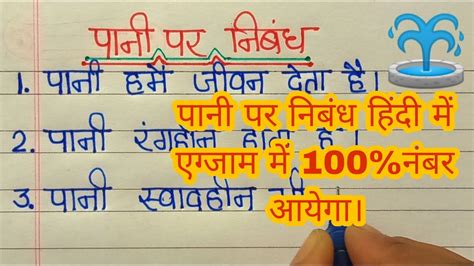 पानी पर निबंध
1. पानी हमें जीवन देता है।
2. पानी रंगहीन होता है।
3. पानी स्वादहीन
पानी पर निबंध हिंदी में
एग्जाम में 100%नंबर
आयेगा।